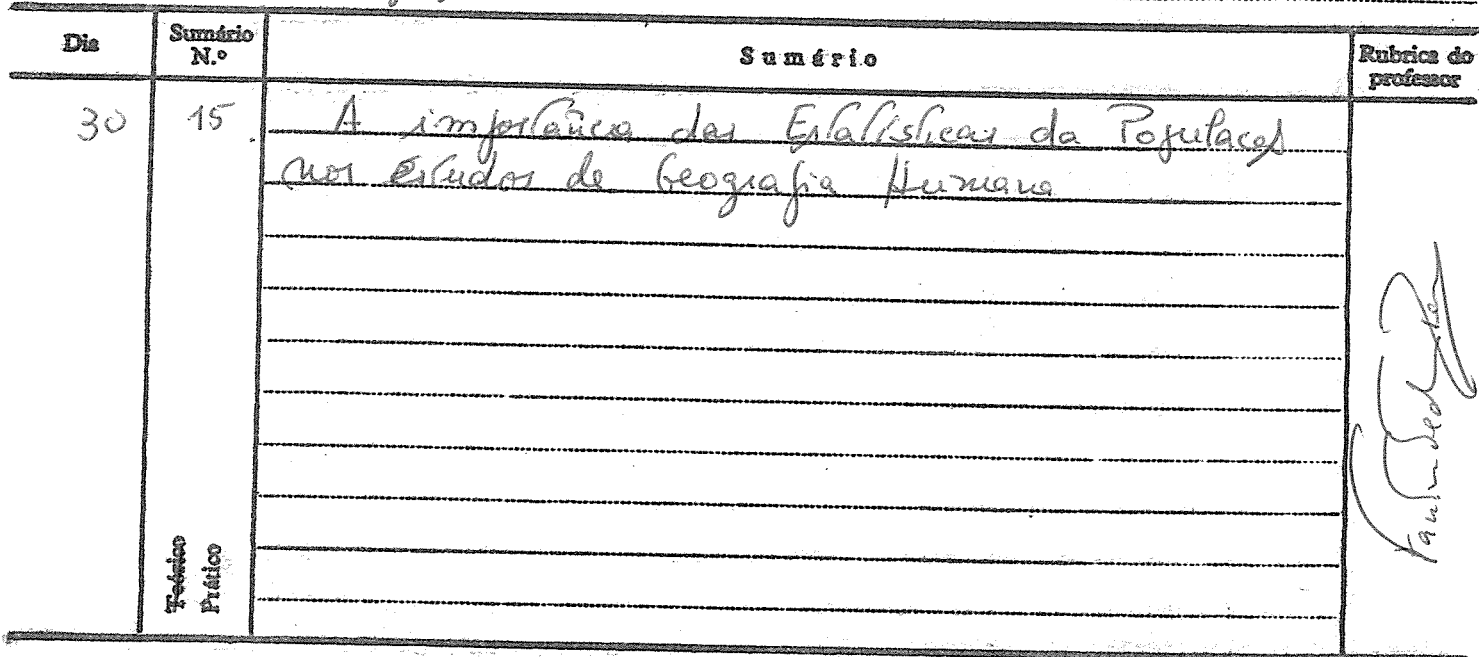 Dia Sumário N.º Sumário Rubrica do professor
30 15 A importância das Estatísticas da População
nos estudos de Geografia Humana
Teórico
Prático